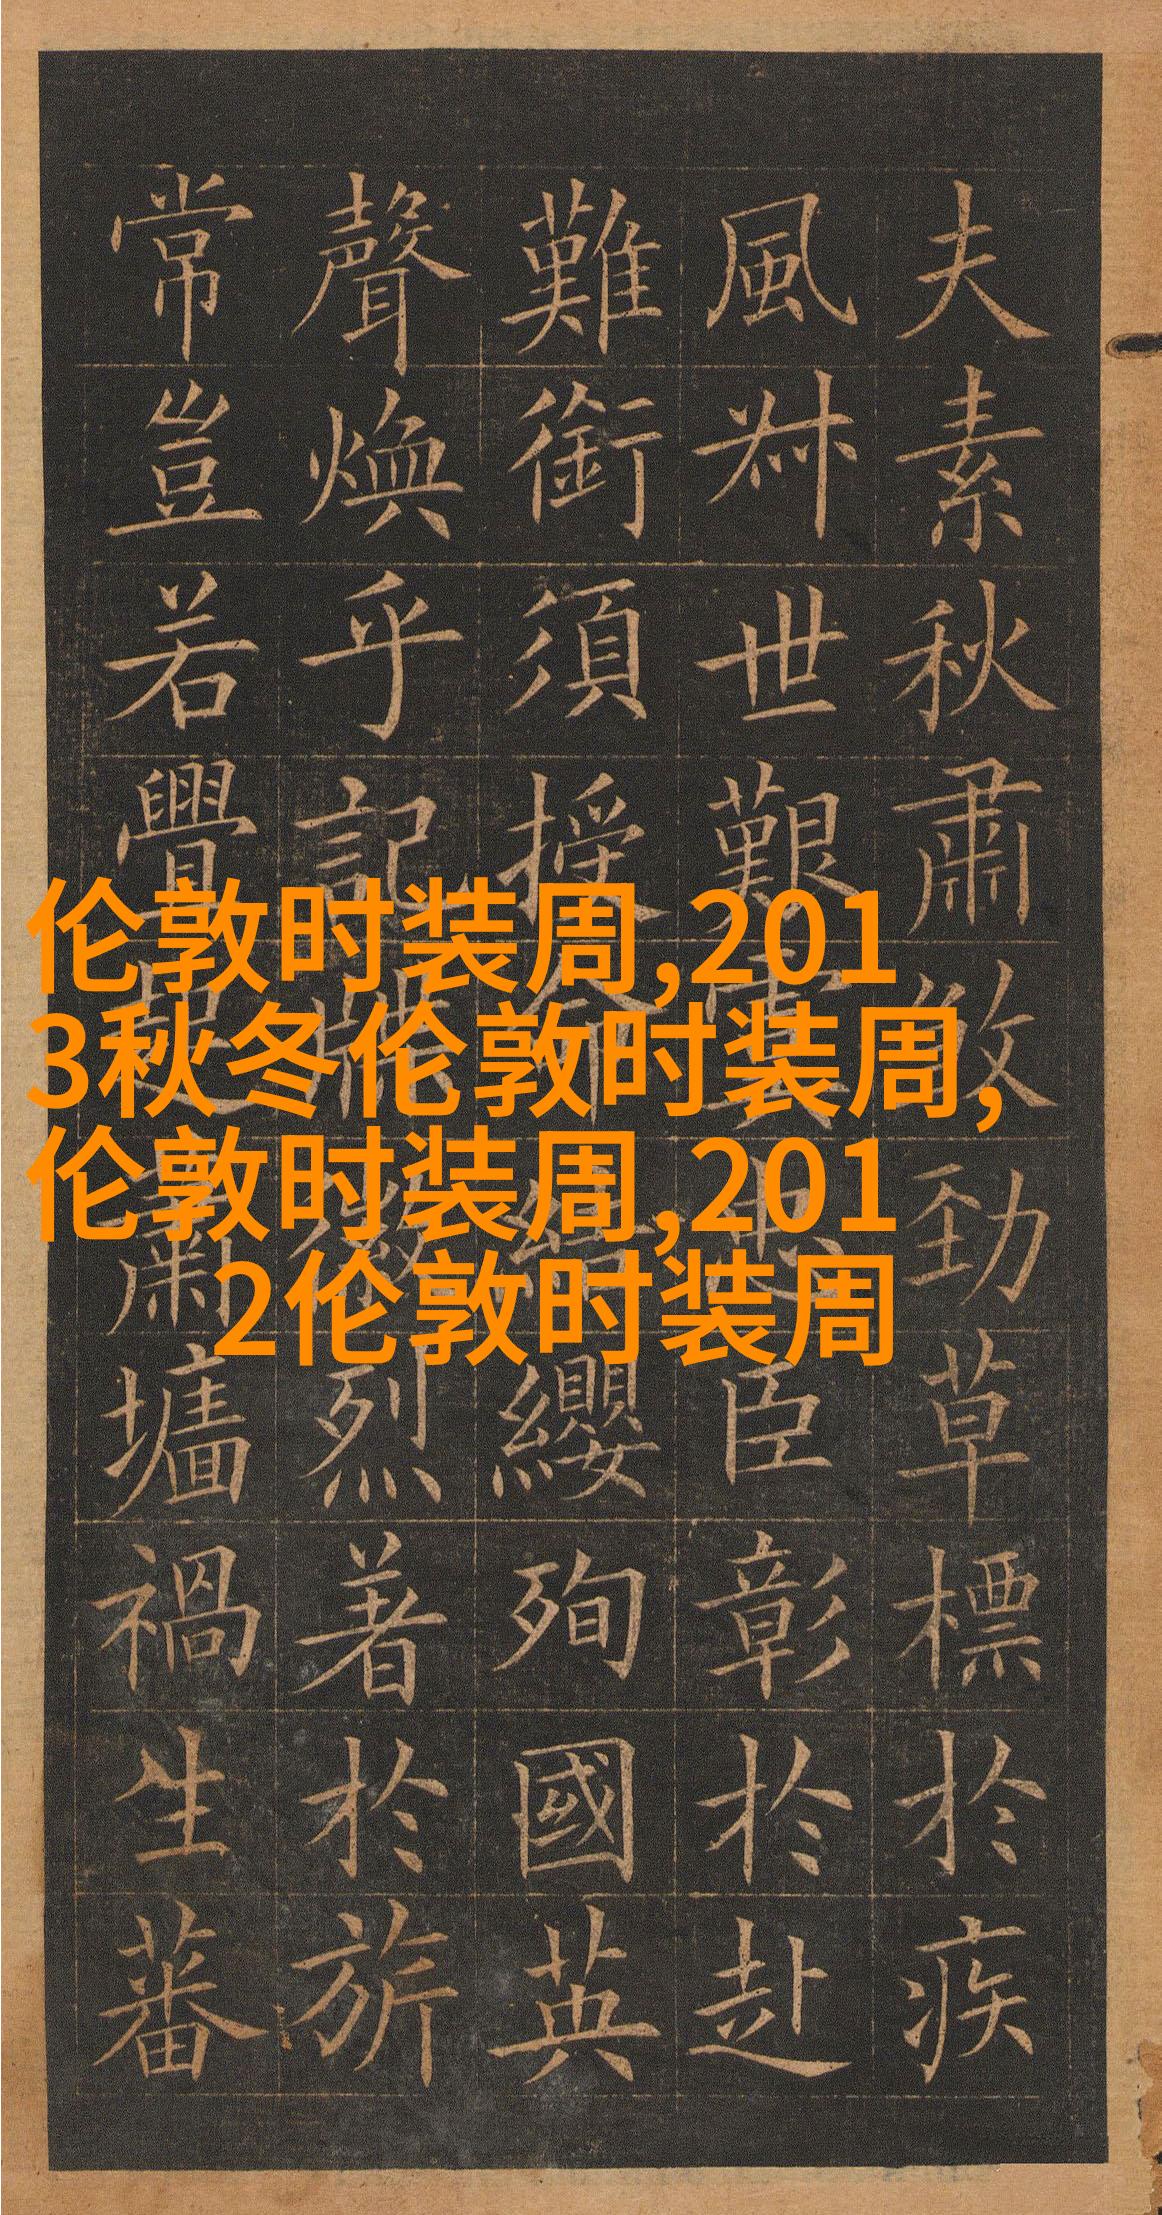 夫素秋肅煞勁草標於疾
風叔世艱忠臣彰於赴
難銜須授命結纓殉國英
聲煥乎記烈著於旂
常豈若釁起蕭墻禍生蕃
伦敦时装周,201
3秋冬伦敦时装周,
伦敦时装周,201
2伦敦时装周